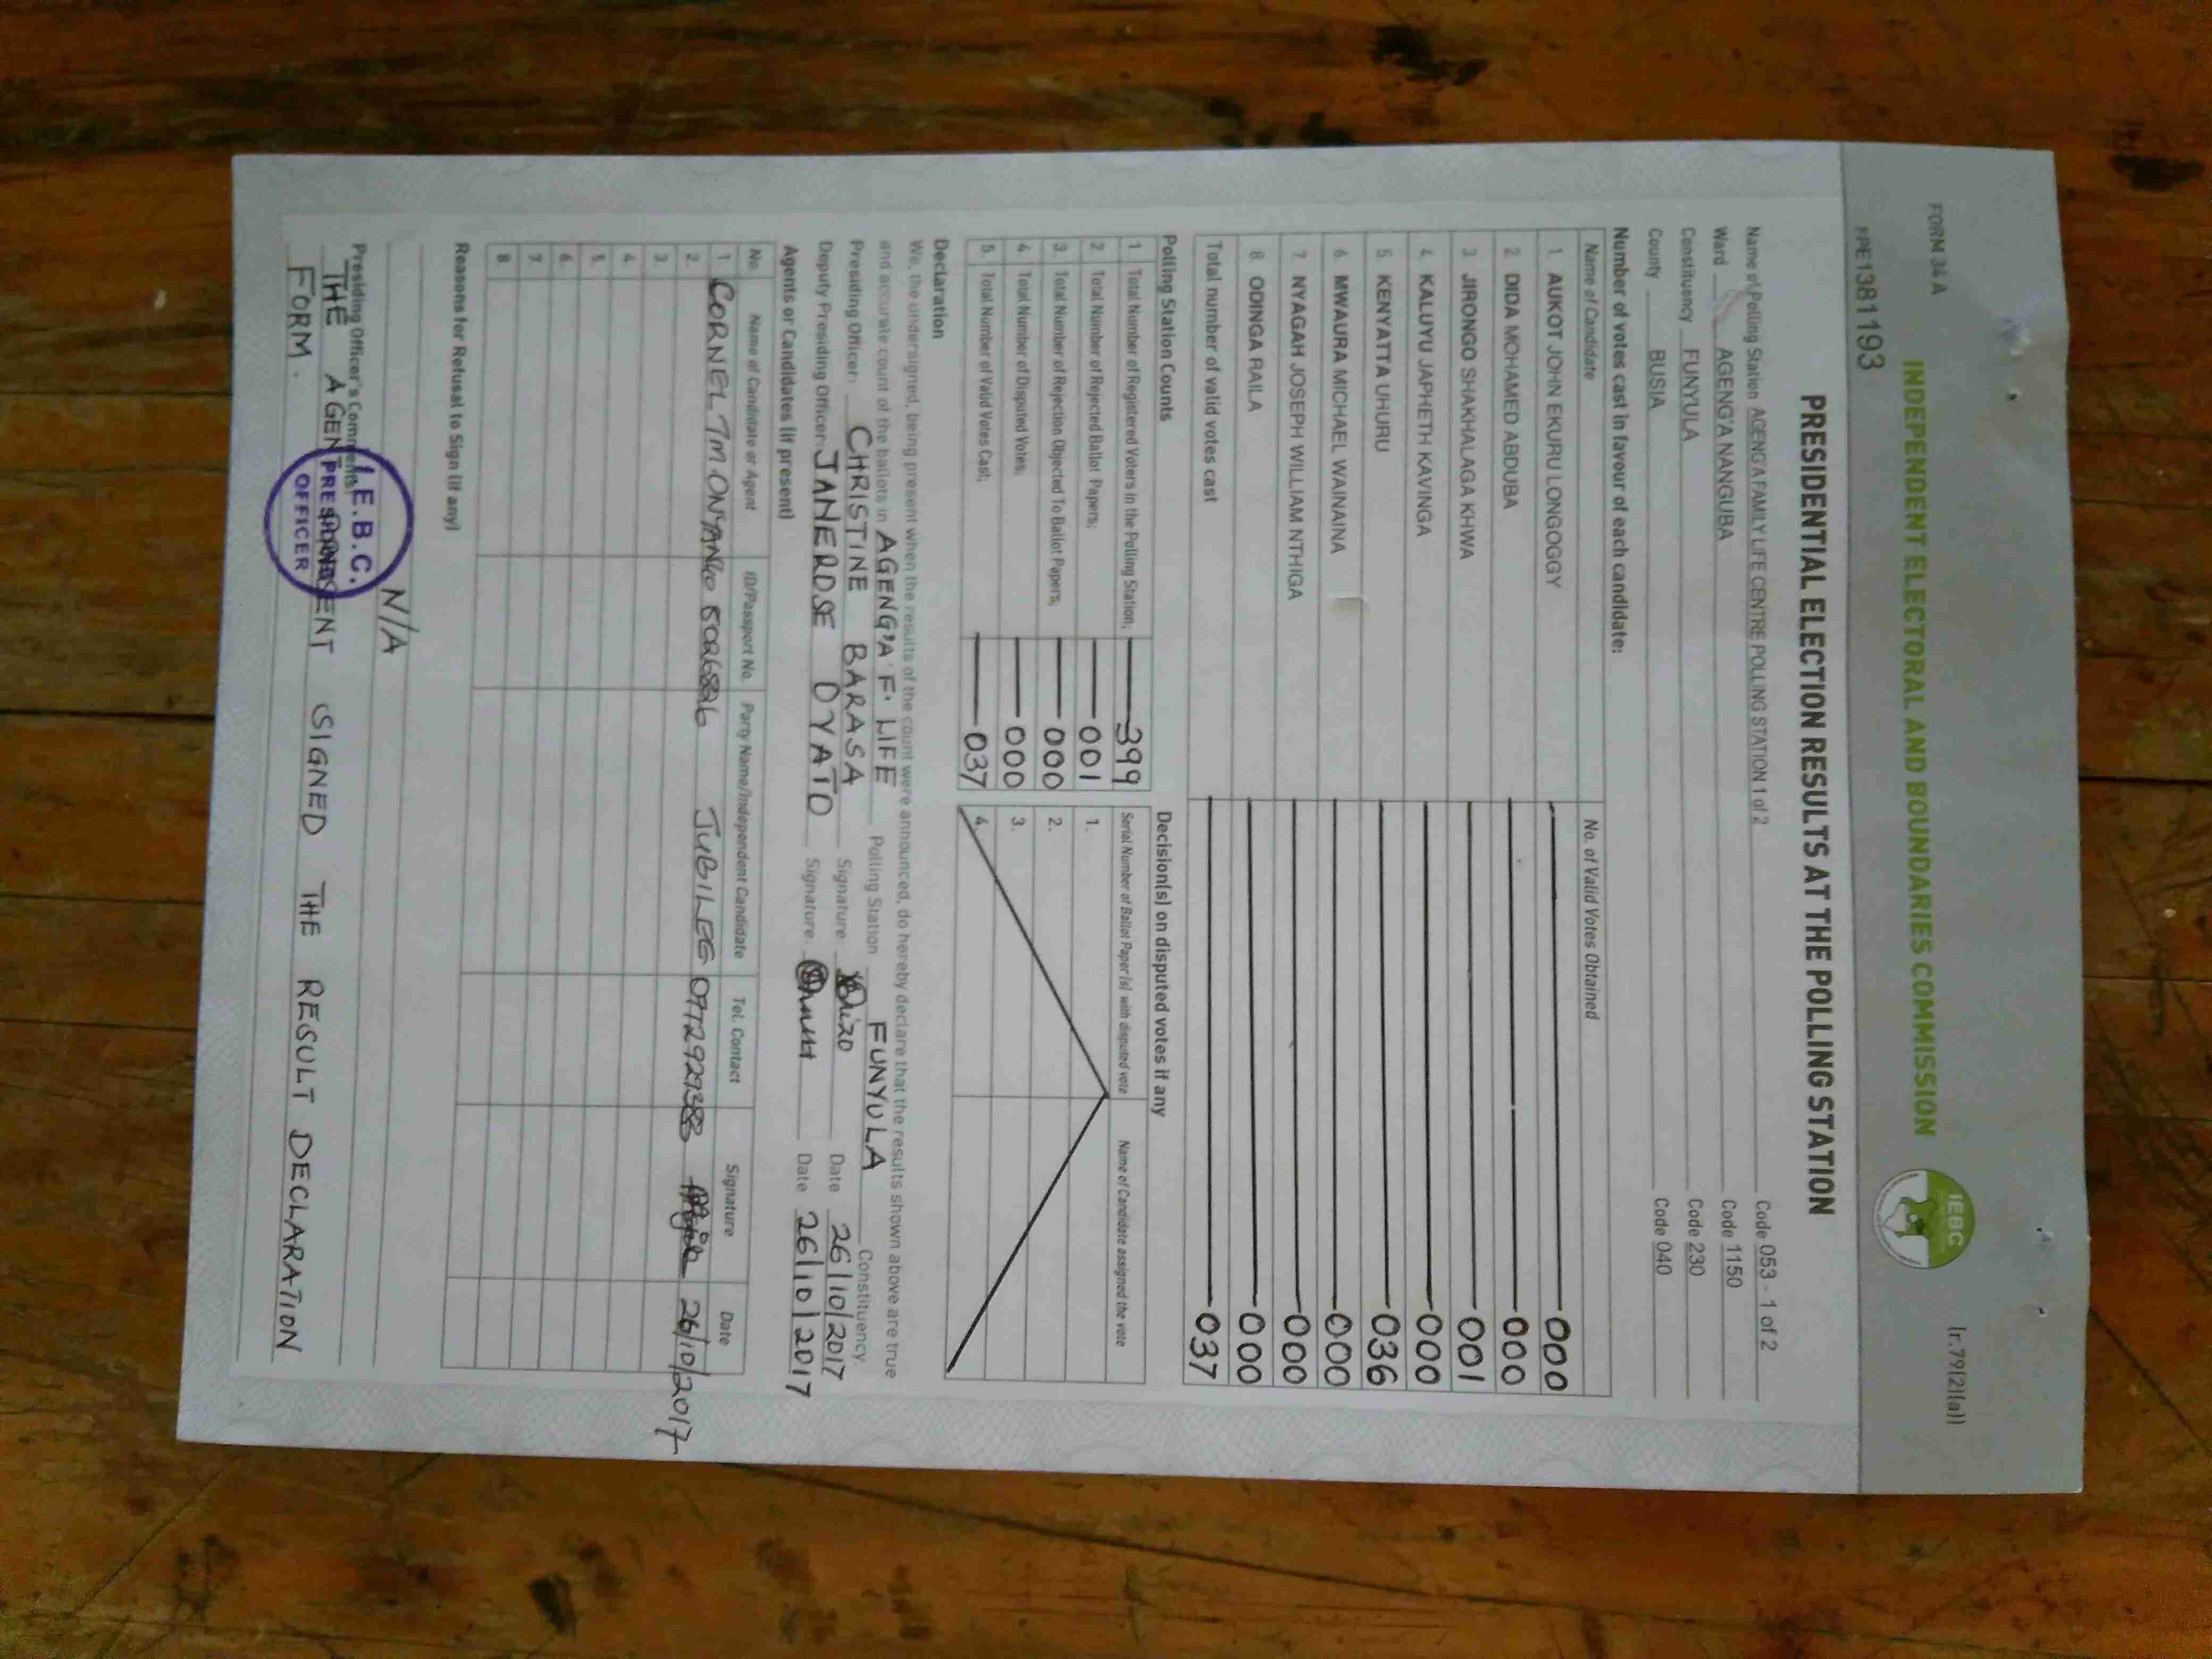 FORM 34 A
(r.79(2)(a))
INDEPENDENT ELECTORAL AND BOUNDARIES COMMISSION
IEBC
PRESIDENTIAL ELECTION RESULTS AT THE POLLING STATION
Name of Polling Station AGENG'A FAMILY LIFE CENTRE POLLING STATION 1 of 2 Code 053 - 1 of 2
Ward AGENG'A NANGUBA Code 1150
Constituency FUNYULA Code 230
County BUSIA Code 040
Number of votes cast in favour of each candidate:
Name of Candidate No. of Valid Votes Obtained
1 AUKOT JOHN EKURU LONGOGGY 000
2 DIDA MOHAMED ABDUBA 000
3 JIRONGO SHAKHALAGA KHWA 001
4 KALUYU JAPHETH KAVINGA 000
5 KENYATTA UHURU 036
6 MWAURA MICHAEL WAINAINA 000
7 NYAGAH JOSEPH WILLIAM NTHIGA 000
8 ODINGA RAILA 000
Total number of valid votes cast 037
Polling Station Counts
1 Total Number of Registered Voters in the Polling Station; 399
2 Total Number of Rejected Ballot Papers; 001
3. Total Number of Rejection Objected To Ballot Papers; 000
4. Total Number of Disputed Votes; 000
5. Total Number of Valid Votes Cast; 037
Decision(s) on disputed votes if any
Serial Number of Ballot Paper(s) with disputed vote Name of Candidate assigned the vote
1.
2.
3.
4.
Declaration
We, the undersigned, being present when the results of the count were announced, do hereby declare that the results shown above are true
and accurate count of the ballots in AGENG'A F. LIFE Polling Station FUNYULA Constituency.
Presiding Officer: CHRISTINE BARASA Signature Date 26/10/2017
Deputy Presiding Officer: JANEROSE OYATO Signature Date 26/10/2017
Agents or Candidates (if present)
No. Name of Candidate or Agent ID/Passport No. Party Name/Independent Candidate Tel. Contact Signature Date
1 JUBILEE 26/10/2017
2.
3
4.
5.
6.
7.
8.
Reasons for Refusal to Sign (if any)
N/A
Presiding Officer's Comments:
THE AGENT SIGNED THE RESULT DECLARATION
FORM.
I.E.B.C.
PRESIDING
OFFICER